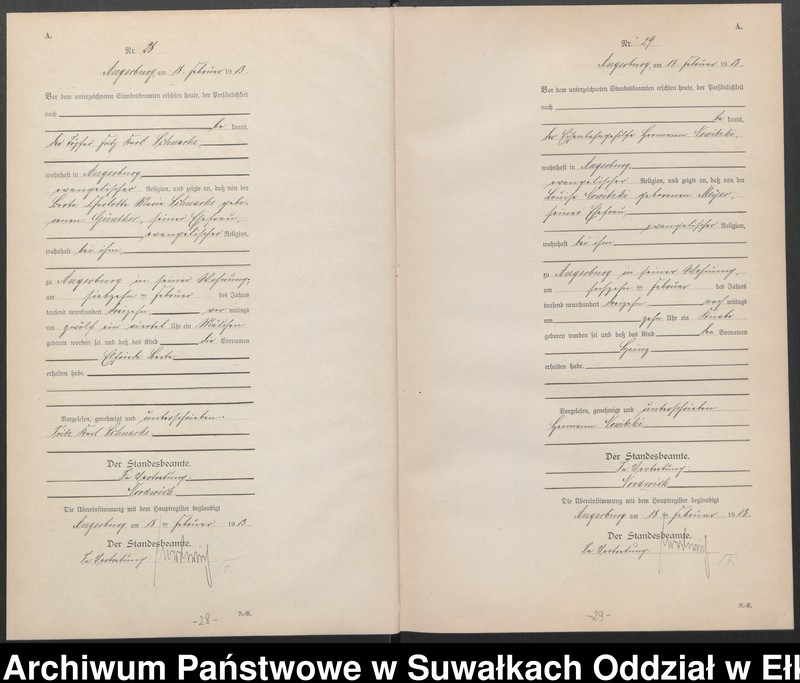 A.
Nr. 28
Angerburg, am 18. Februar 1913.
Vor dem unterzeichneten Standesbeamten erschien heute, der Persönlichkeit
nach
be kannt,
der Töpfer Fritz Karl
wohnhaft in Angerburg
evangelischer Religion, und zeigte an, daß von der
Berta Charlotte Marie gebo-
renen Günther, seiner Ehefrau,
evangelischer Religion,
wohnhaft bei ihm
zu Angerburg in seiner Wohnung,
am siebzehn ten Februar des Jahres
tausend neunhundert dreizehn vor mittags
um zwölf ein viertel Uhr ein Mädchen
geboren worden sei und daß das Kind die Vornamen
Elfriede Berta
erhalten habe.
Vorgelesen, genehmigt und unterschrieben.
Fritz Karl
Der Standesbeamte.
In Vertretung
Nordwich
Die Übereinstimmung mit dem Hauptregister beglaubigt
Angerburg am 18 ten Februar 1913
Der Standesbeamte.
In Vertretung.
Nordwich
-28-
R.-R.
A.
Nr. 29
Angerburg, am 18. Februar 1913.
Vor dem unterzeichneten Standesbeamten erschien heute, der Persönlichkeit
nach
be kannt,
der Eisenbahngehilfe Hermann Sowitzki,
wohnhaft in Angerburg,
evangelischer Religion, und zeigte an, daß von der
Louise Sowitzki geborenen Meyer,
seiner Ehefrau,
evangelischer Religion,
wohnhaft bei ihm
zu Angerburg in seiner Wohnung,
am sechzehn ten Februar des Jahres
tausend neunhundert dreizehn nach mittags
um zehn Uhr ein Knabe
geboren worden sei und daß das Kind den Vornamen
Heinz
erhalten habe.
Vorgelesen, genehmigt und unterschrieben
Hermann Sowitzki
Der Standesbeamte.
In Vertretung.
Nordwich
Die Übereinstimmung mit dem Hauptregister beglaubigt
Angerburg am 18 ten Februar 1913.
Der Standesbeamte.
In Vertretung.
Nordwich
-29-
R.-R.
Archiwum Państwowe w Suwałkach Oddział w Eł